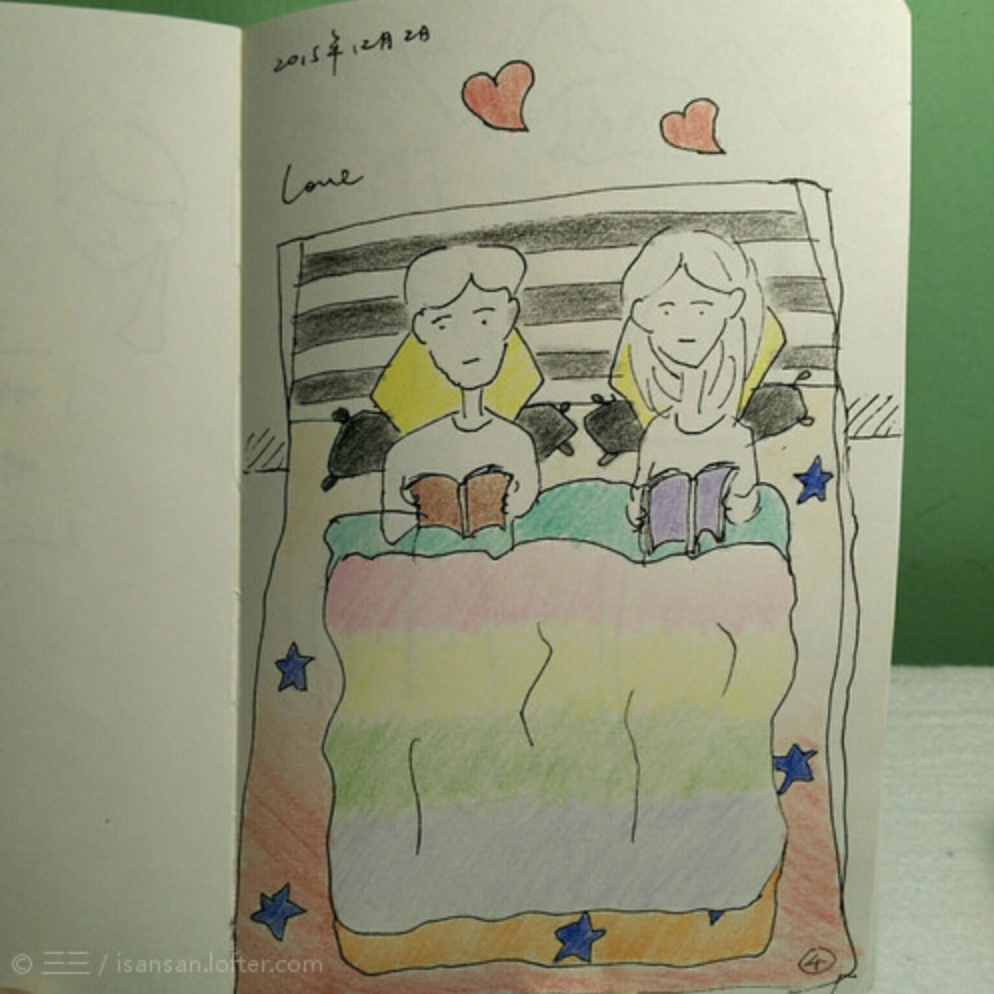 2015年12月2日
Love
4
© 三三 / isansan.lofter.com